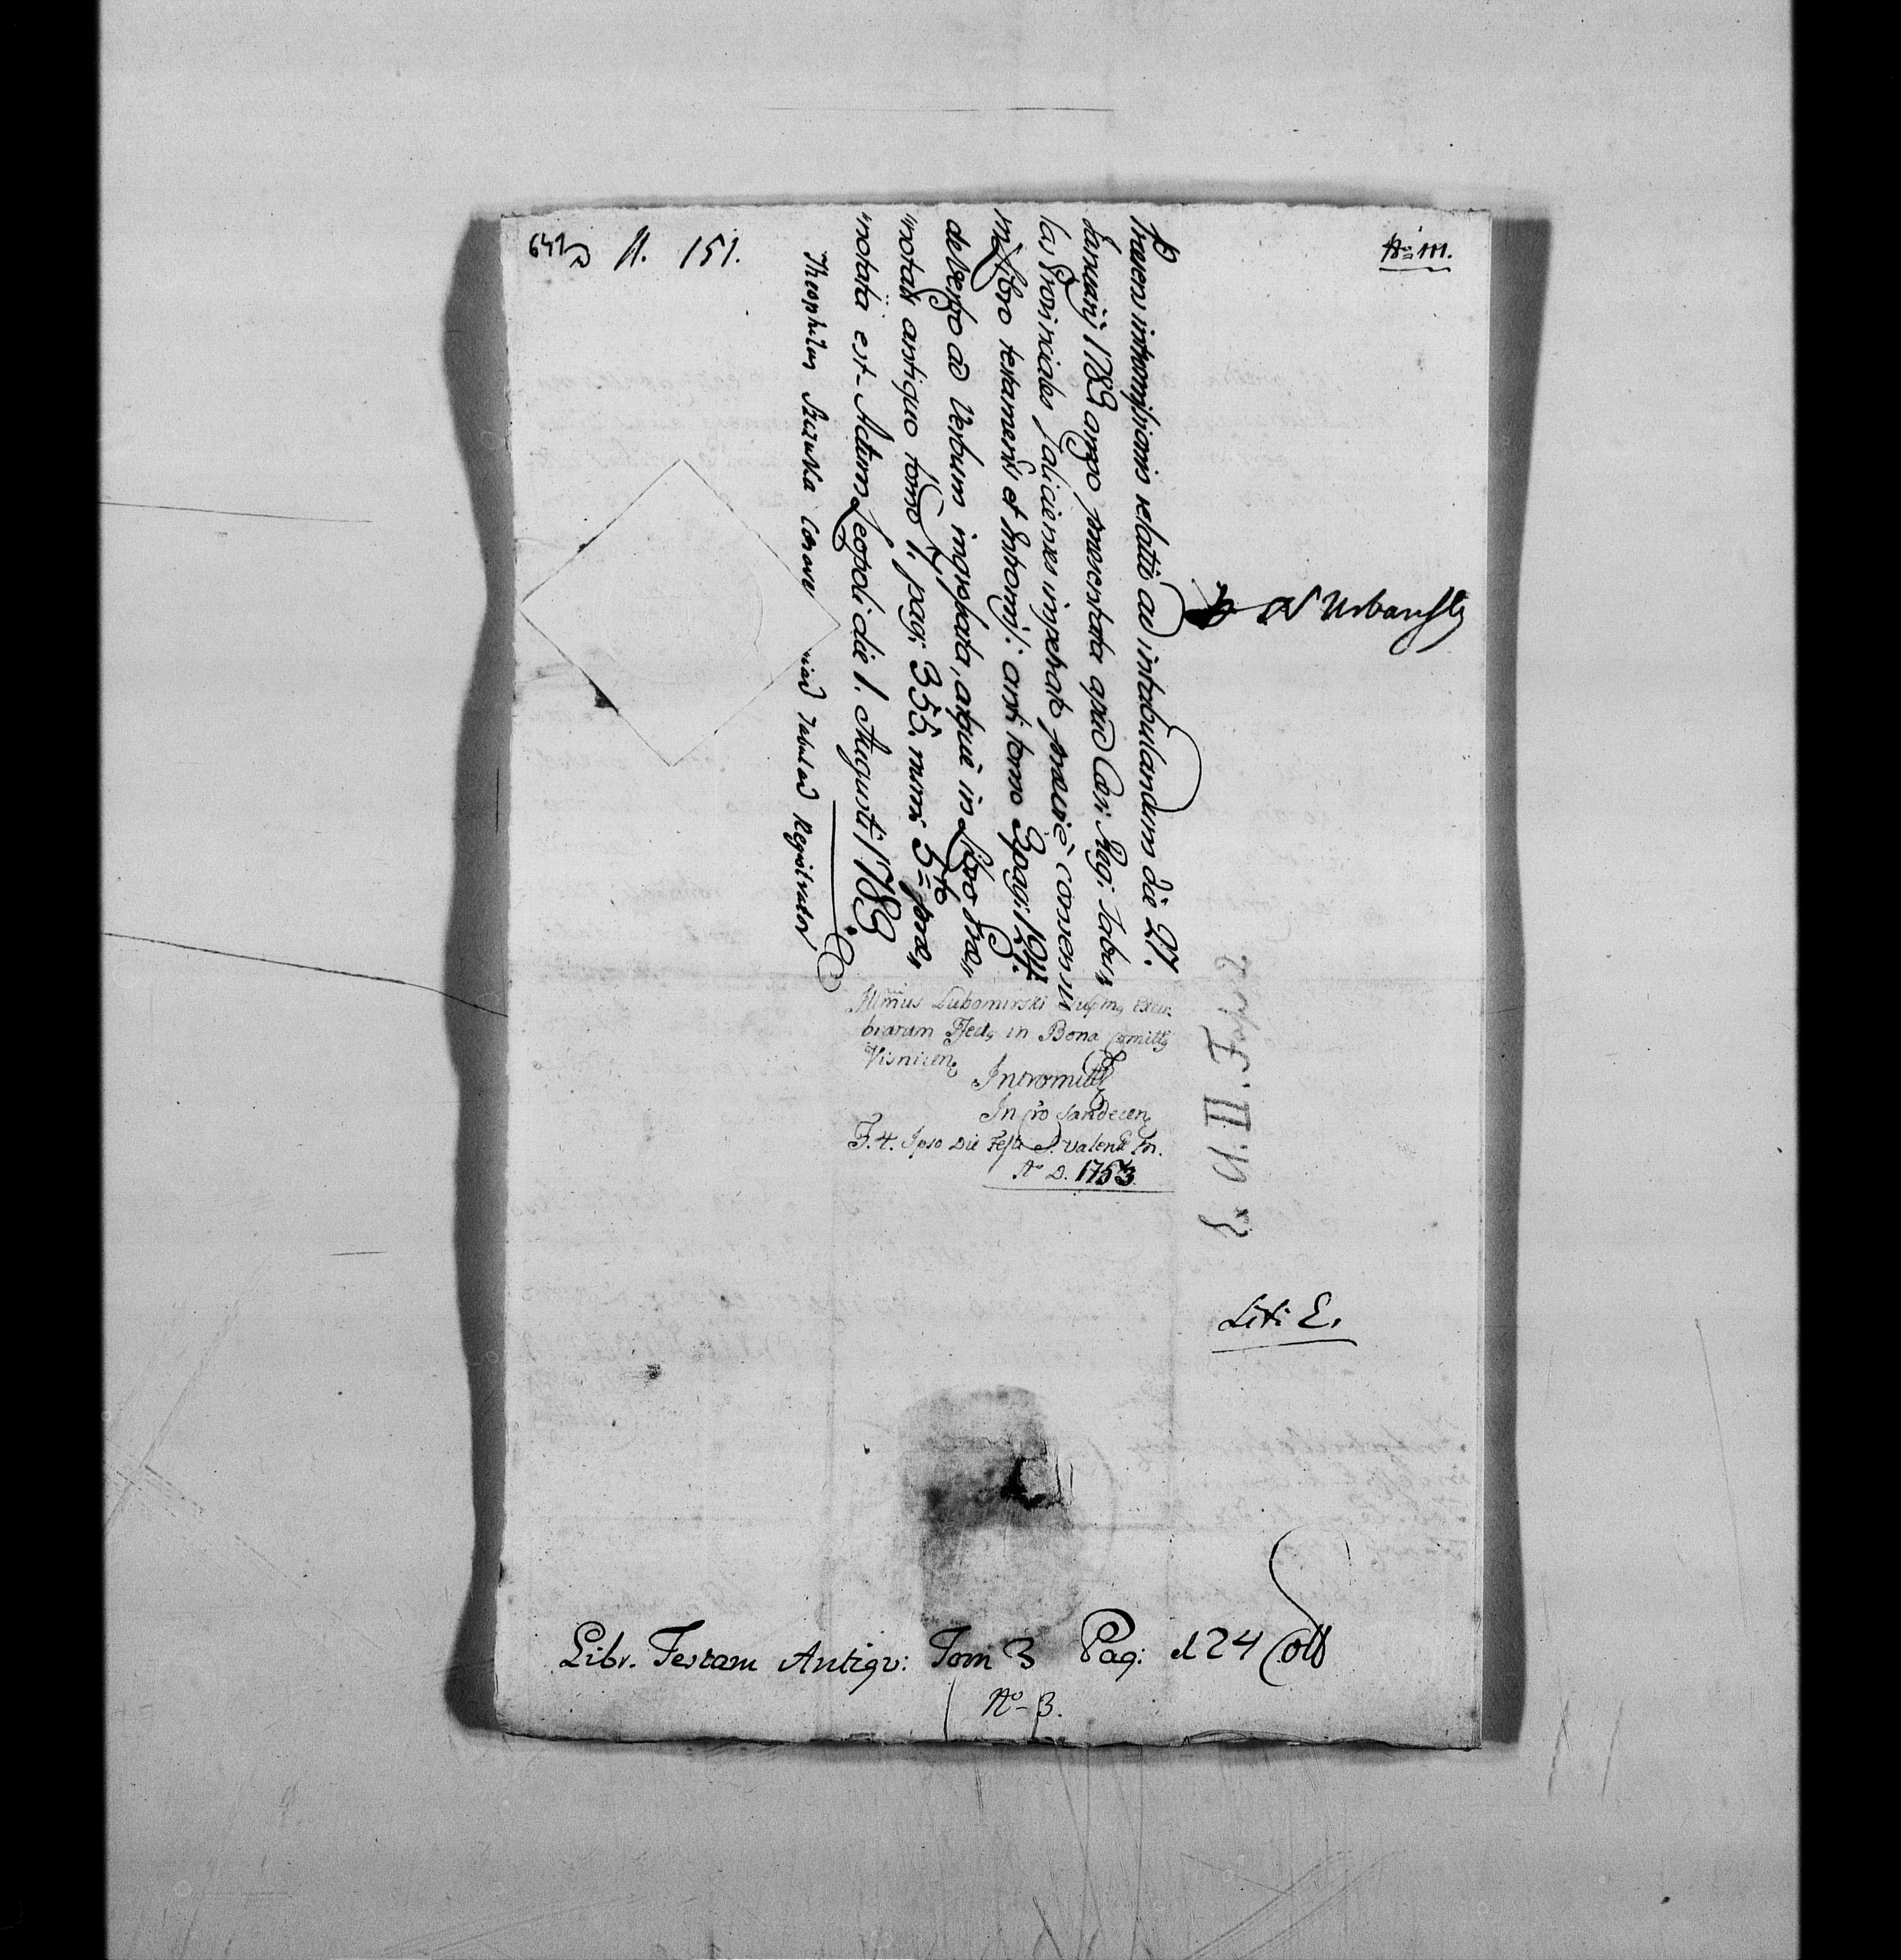 641 N. 151.
No 111.
Praesens intromissionis relatio ad intabulandum die 27.
Januarij 1782 anno praesentata apud Caes. Reg. Tabu„
las Provinciales Haliciensi impetrato praevie consensu
in Libro testament et Intromis: anti tomo 3 pagi 124
de verbo ad Verbum ingrossata, atque in Libro Prae„
„notat antiquo tomo 1. pag: 355. num 5to prae„
„notata est. Actum Leopoli die 1. Augusti 1783.
Theophilus Szczurka Tabular Registrator
Urbansky
Illmus Lubomirski Supm, Excu„
biarum Pfect, in Bona Comitt,
Visnicen,
Intromitt
In Cro Sandecen,
F. 4. Ipso Die Festi S. Valent M.
Ao D. 1753.
U. II.
Lit: E.
Libr. Testam Antiqv: Tom 3 Pag: 124 Coll
No 3.